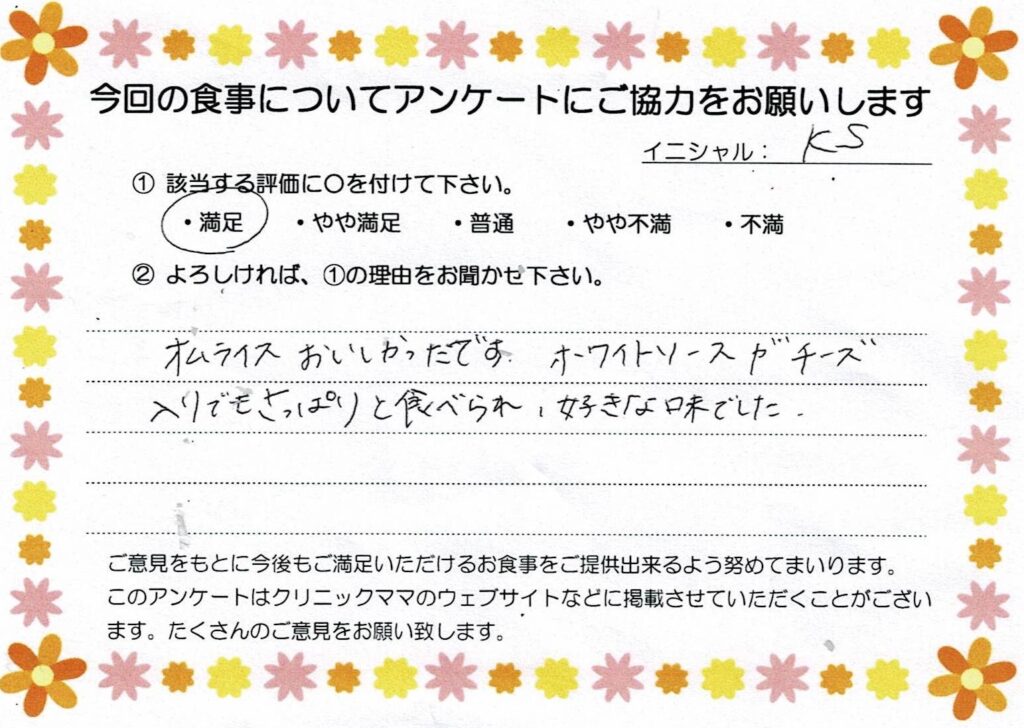 今回の食事についてアンケートにご協力をお願いします
イニシャル： KS
① 該当する評価に〇を付けて下さい。
・満足 ・やや満足 ・普通 ・やや不満 ・不満
② よろしければ、①の理由をお聞かせ下さい。
オムライス おいしかったです. ホーワイトソースがチーズ
入りでもさっぱりと食べられ、好きな味でした.
ご意見をもとに今後もご満足いただけるお食事をご提供出来るよう努めてまいります。
このアンケートはクリニックママのウェブサイトなどに掲載させていただくことがござい
ます。たくさんのご意見をお願い致します。